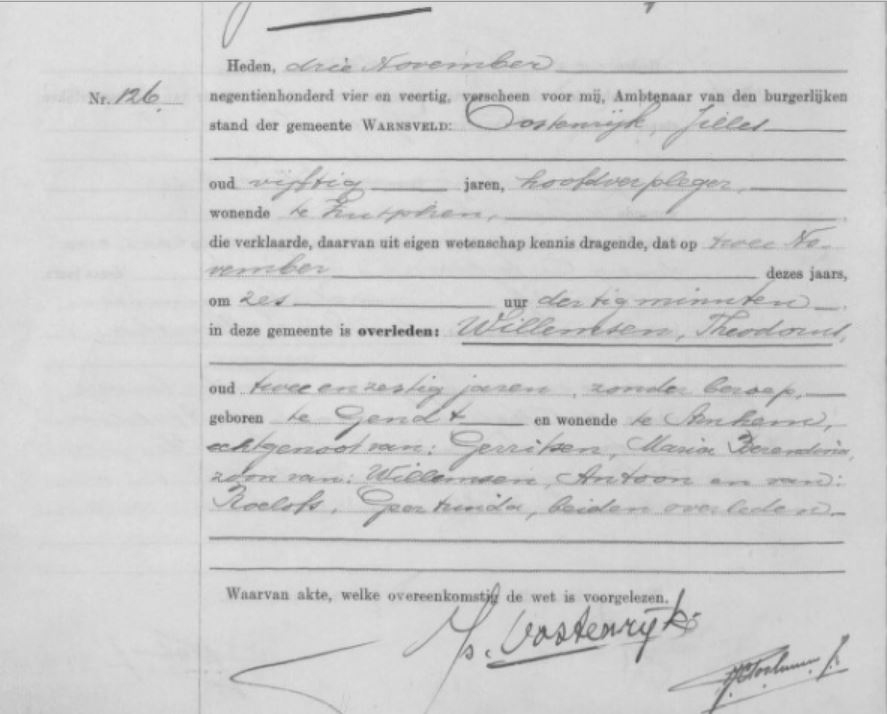 Heden, drie November
Nr. 126. negentienhonderd vier en veertig, verscheen voor mij, Ambtenaar van den burgerlijken
stand der gemeente WARNSVELD: Oostenrijk, Jilles
oud vijftig jaren, hoofdverpleger,
wonende te Zutphen,
die verklaarde, daarvan uit eigen wetenschap kennis dragende, dat op twee No-
vember dezes jaars,
om zes uur dertig minuten
in deze gemeente is overleden: Willemsen, Theodorus,
oud twee en zestig jaren, zonder beroep,
geboren te Gendt en wonende te Arnhem,
echtgenoot van: Gerritsen, Maria Berendina,
zoon van: Willemsen, Antoon en van:
Roelofs, Geertruida, beiden overleden.
Waarvan akte, welke overeenkomstig de wet is voorgelezen.
Js. Oostenrijk